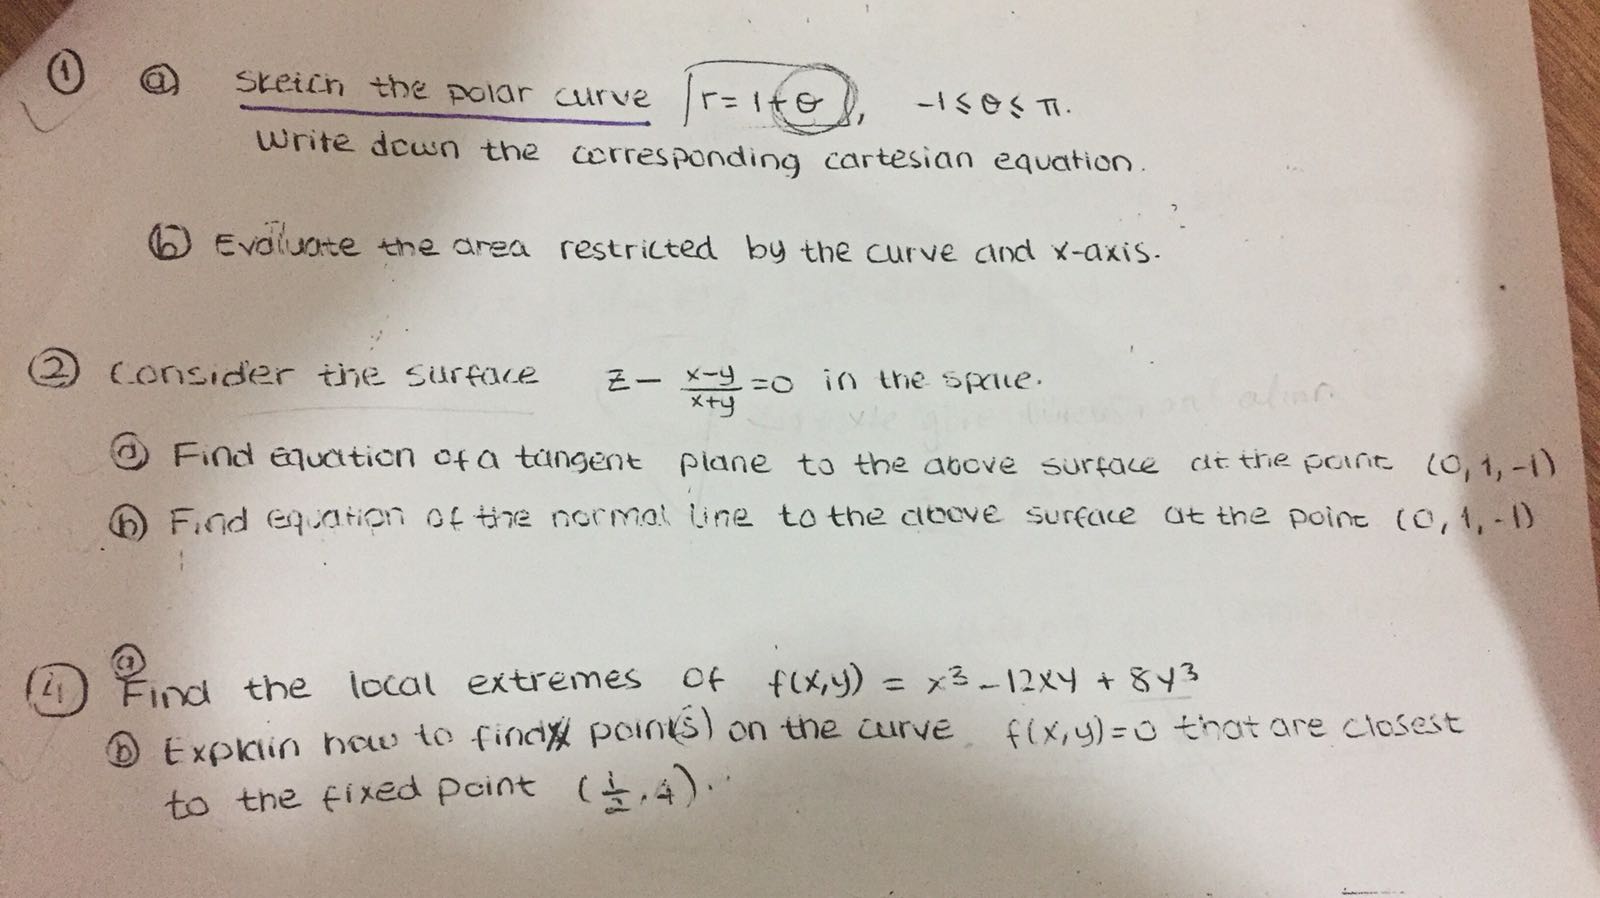 ① ⓐ Sketch the polar curve r = 1+θ, -1 ≤ θ ≤ π.
Write down the corresponding cartesian equation.
ⓑ Evaluate the area restricted by the curve and x-axis.
② Consider the surface z - (x-y)/(x+y) = 0 in the space.
ⓐ Find equation of a tangent plane to the above surface at the point (0, 1, -1)
ⓑ Find equation of the normal line to the above surface at the point (0, 1, -1)
④ ⓐ Find the local extremes of f(x,y) = x³ - 12xy + 8y³
ⓑ Explain how to find point(s) on the curve f(x,y)=0 that are closest
to the fixed point (1/2, 4).